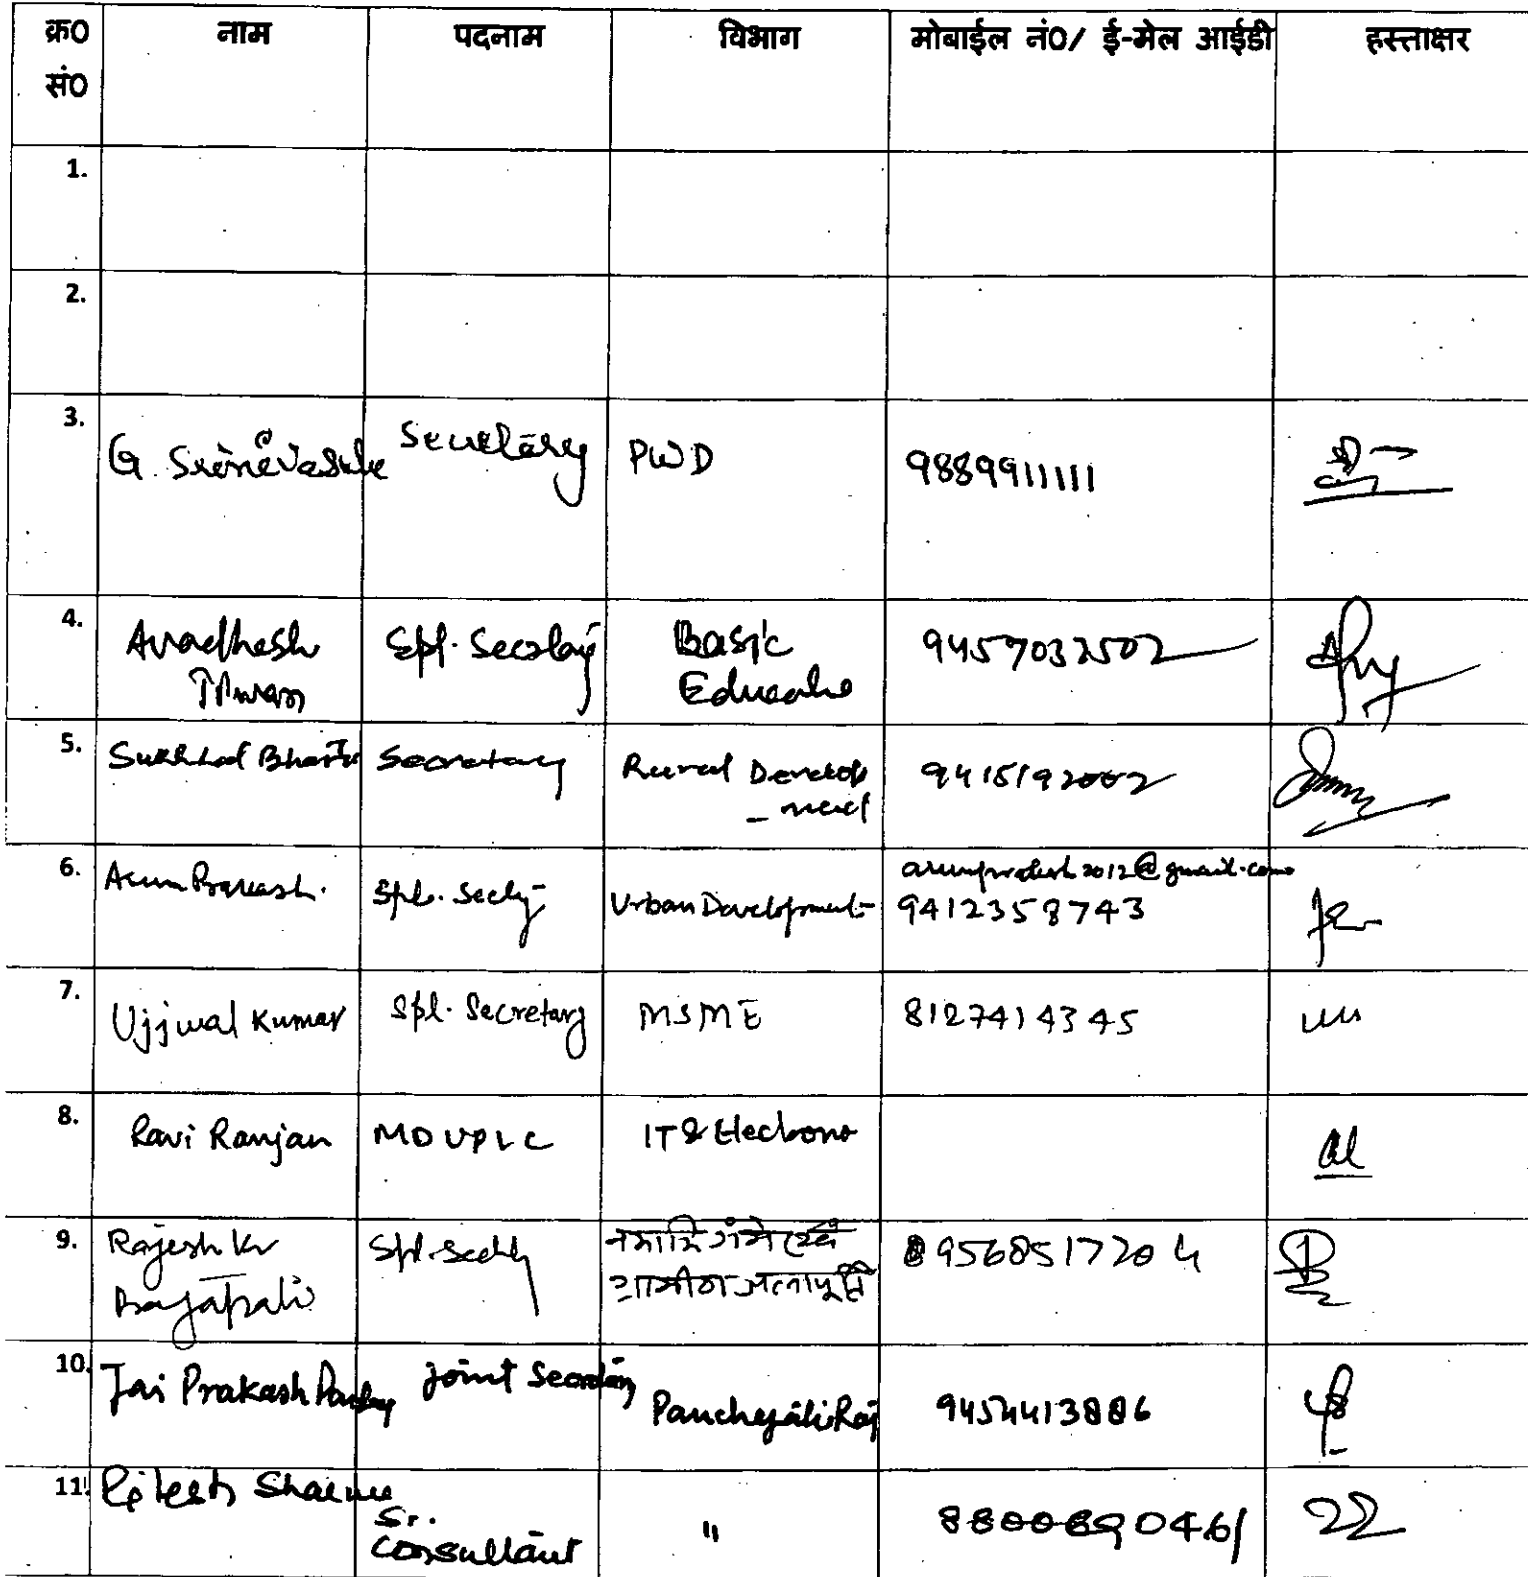 क्र0 सं0 नाम पदनाम विभाग मोबाईल नं0/ ई-मेल आईडी हस्ताक्षर
1.
2.
3. G. Secretary PWD 9889911111
4. Avadhesh Spl. Basic 9457032502
5. Secretary Rural Develop
- ment 9415192002
6. Arun Prakash. Spl. Secy Urban Development arunprakash2012@gmail.com
9412358743
7. Ujjwal Kumar Spl. Secretary MSME 8127414345
8. Ravi Ranjan MD UPLC IT &
9. Rajesh Kr Spl. Secy नमामि गंगे एवं
ग्रामीण जलापूर्ति 9568517204
10. Jai Prakash Pandey Joint Secretary Panchayati Raj 9454413886
11. Sharma Sr.
Consultant " 8800690461